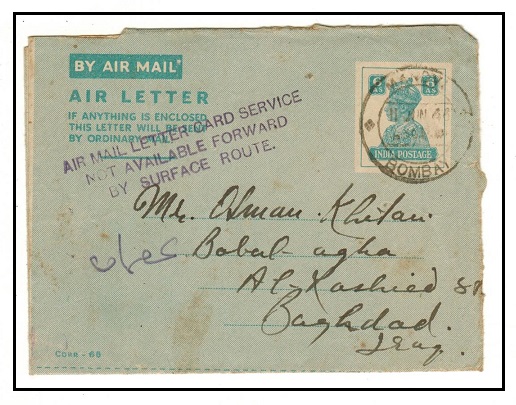 BY AIR MAIL
AIR LETTER
IF ANYTHING IS ENCLOSED
THIS LETTER WILL BE
BY ORDINARY
AIR MAIL LETTER CARD SERVICE
NOT AVAILABLE FORWARD
BY SURFACE ROUTE.
6 AS 6 AS
INDIA POSTAGE
BOMBAY
Mr. Osman Khitan
Babul-agha
Al-Rashied St.
Baghdad.
Iraq.
CORR-68